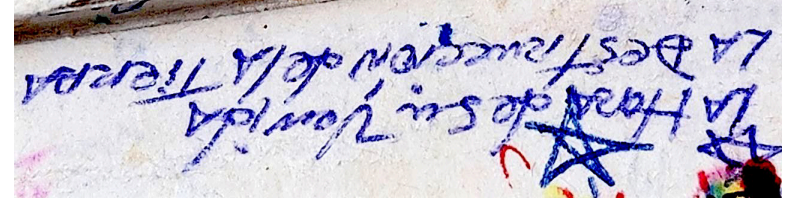 LA Hora de Su Venida
LA Destrucción de LA Tierra